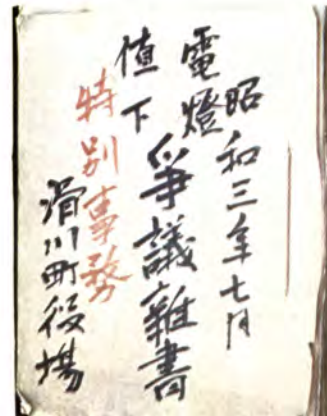 昭和三年七月
電燈
値下
爭議雜書
特別事務
滑川町役場